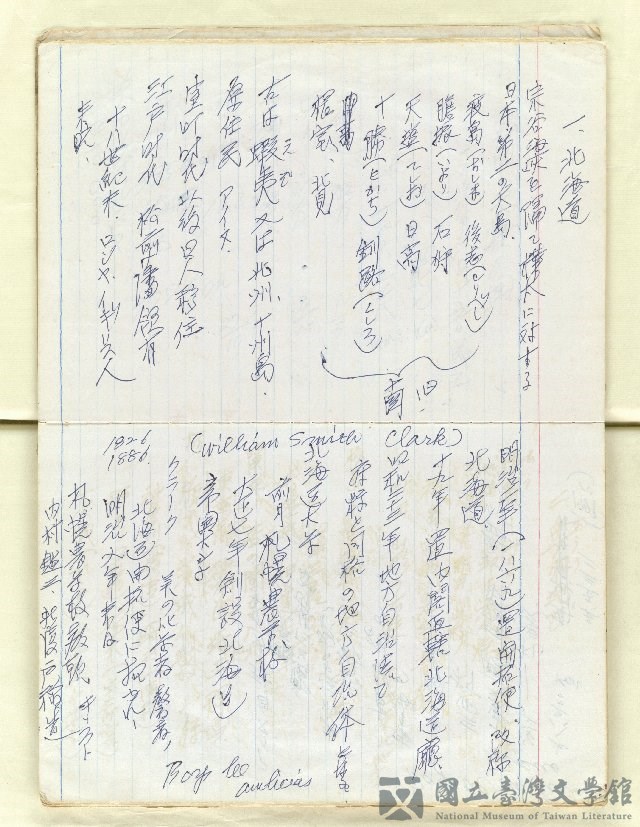 一、北海道
宗谷海峡を隔て樺太に対する
日本第二の大島、
渡島(おしま) 後志(しりべし)
胆振(いぶり) 石狩
天塩(てしお) 日高
十勝(とかち) 釧路(くしろ)
根室、北見
旧 国
古は蝦夷又は北州、十州島、
えぞ
原住民 アイヌ、
室町时代以後日人移住
江戸时代 松前藩領有
十八世紀末、ロシヤ、イギリス人
来航、
明治二年(一八六九)置開拓使、改称
北海道、
十九年 置内閣直轄北海道廳
昭和二十二年地方自治法で
府県と同格の地方自治体
北海道大学
前身札幌農学校
大正七年創設北海道
帝票大学
(William Smith Clark)
1826
1886
クラーク 美の化学者、
北海道開拓使に招かれ、
明治九年来日
札幌農学校教頭 キリスト
内村鑑三、新渡戸稲造
Boys be
ambicias
國立臺灣文學館
National Museum of Taiwan Literature